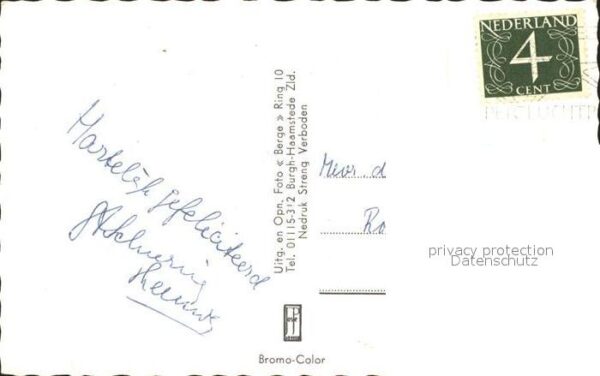 NEDERLAND
4
CENT
Hartelijk gefeliciteerd
Uitg. en Opn. Foto « Berge » Ring 10
Tel. 01115-312 Burgh-Haamstede Zld.
Nedruk Streng Verboden
Mevr. d
Ro
privacy protection
Datenschutz
Bromo-Color